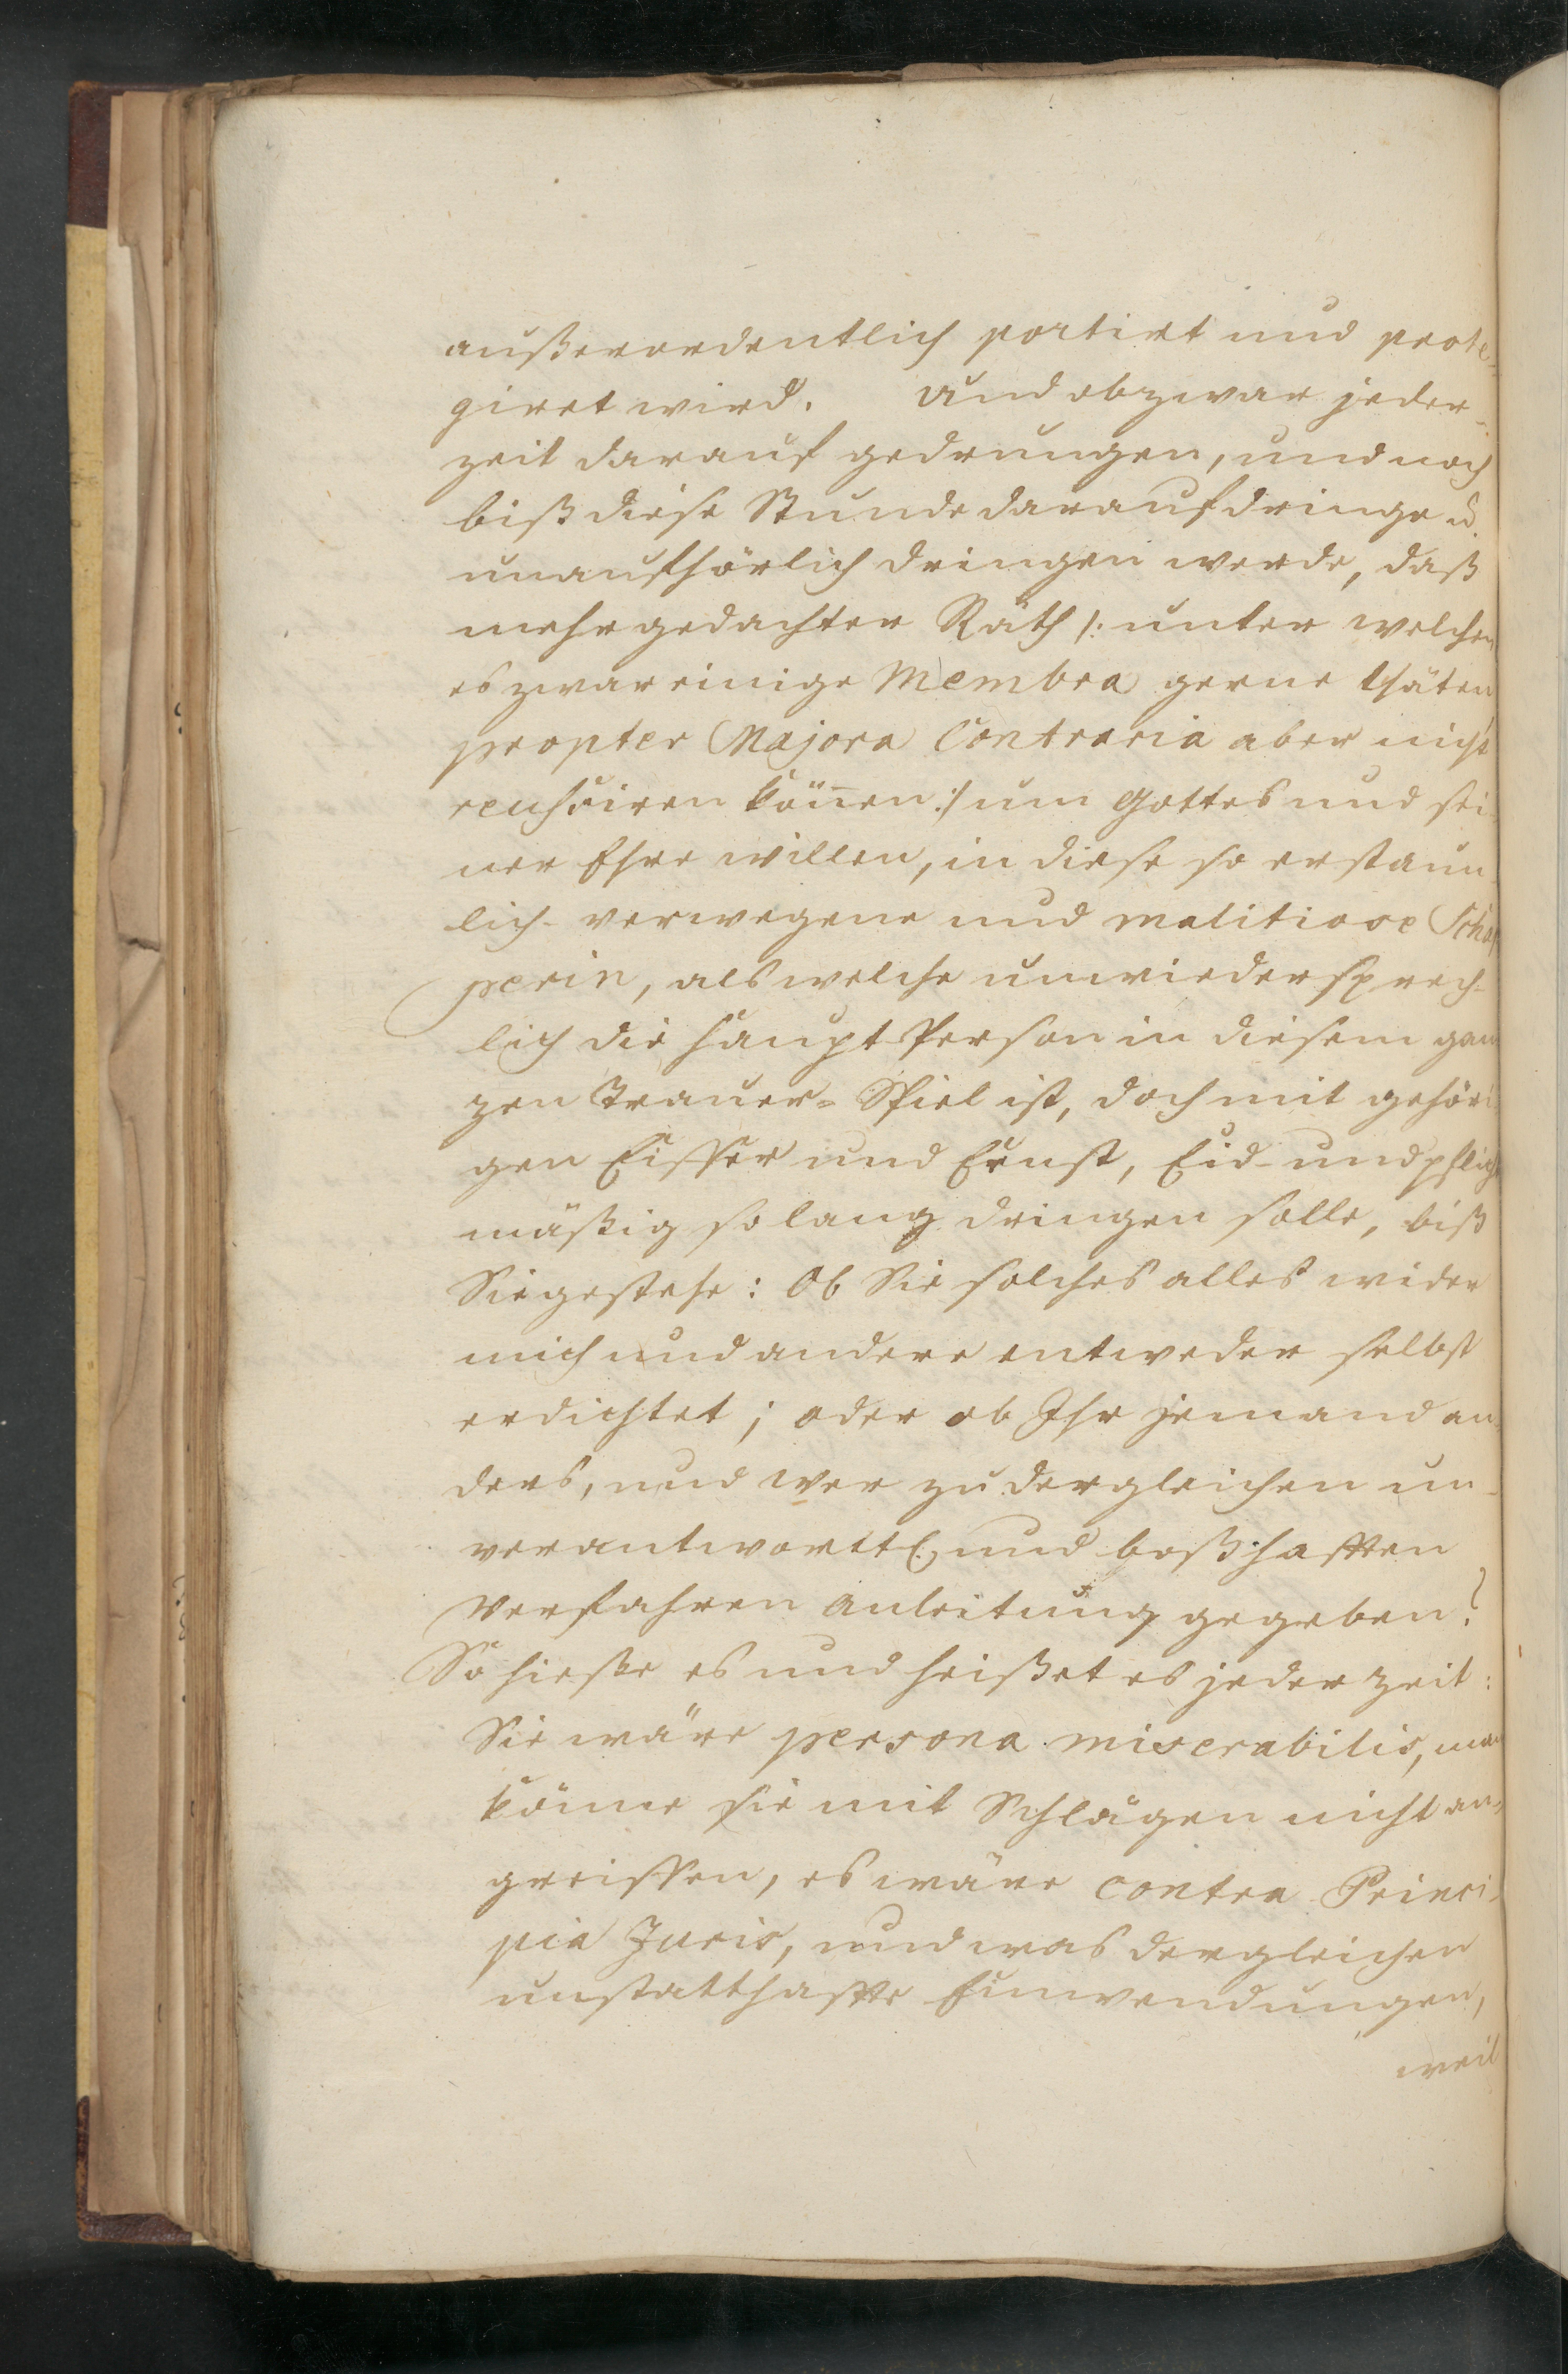 außerordentlich portirt und prote-
giret wird. Und obzwar jeder-
zeit darauf gedrungen, und noch
biß diese Stunde darauf dringe u.
unaufhörlich dringen werde, daß
mehrgedachter Rath /: unter welchen
es zwar einige Membra gerne thäten
propter Majora Contraria aber nicht
reushsiren können :/ um Gottes und sei-
ner Ehre willen, in diese so erstaun-
lich- verwegene und malitiose Schap
perin, als welche unwiedersprech-
lich die Haupt-Person in diesem gan
zen Trauer-Spiel ist, doch mit gehöri-
gen Eiffer und Ernst, Eid- und pflich
mäßig so lang dringen solle, biß
Sie gestehe: Ob Sie solches alles wider
mich und andere entweder selbst
erdichtet; oder ob Ihr jemand an-
ders, und wer zu dergleichen un-
verantwortl. und boßhafften
Verfahren Anleitung gegeben?
So hieße es und heißet es jeder Zeit:
Sie wäre persona miserabilis, man
könne sie mit Schlägen nicht an-
greiffen, es wäre contra Princi-
pia Juris, und was dergleichen
unstatthaffte Einwendungen,
weil